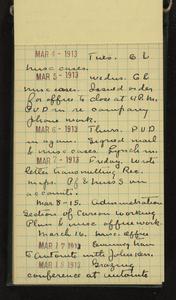 MAR 4 - 1913 Tues. G L
misc cases.
MAR 5 - 1913 Wednes. G L
misc cases. Issued order
for office to close at 4 P.M.
P.V.D in re company
phone work.
MAR 6 - 1913 Thurs. P.V.D
in again. Signed mail
& misc cases. Lynch in
MAR 7 - 1913 Friday. Wrote
letter transmitting Rec.
maps. P.J & Miss S on
accounts.
Mar 8-15. Administration
Section of Carson Working
Plan & misc office work.
March 16. misc. office
MAR 17 1913 Coming han
to Antonito with John Kerr.
MAR 18 1913 Grazing
conference at Antonito